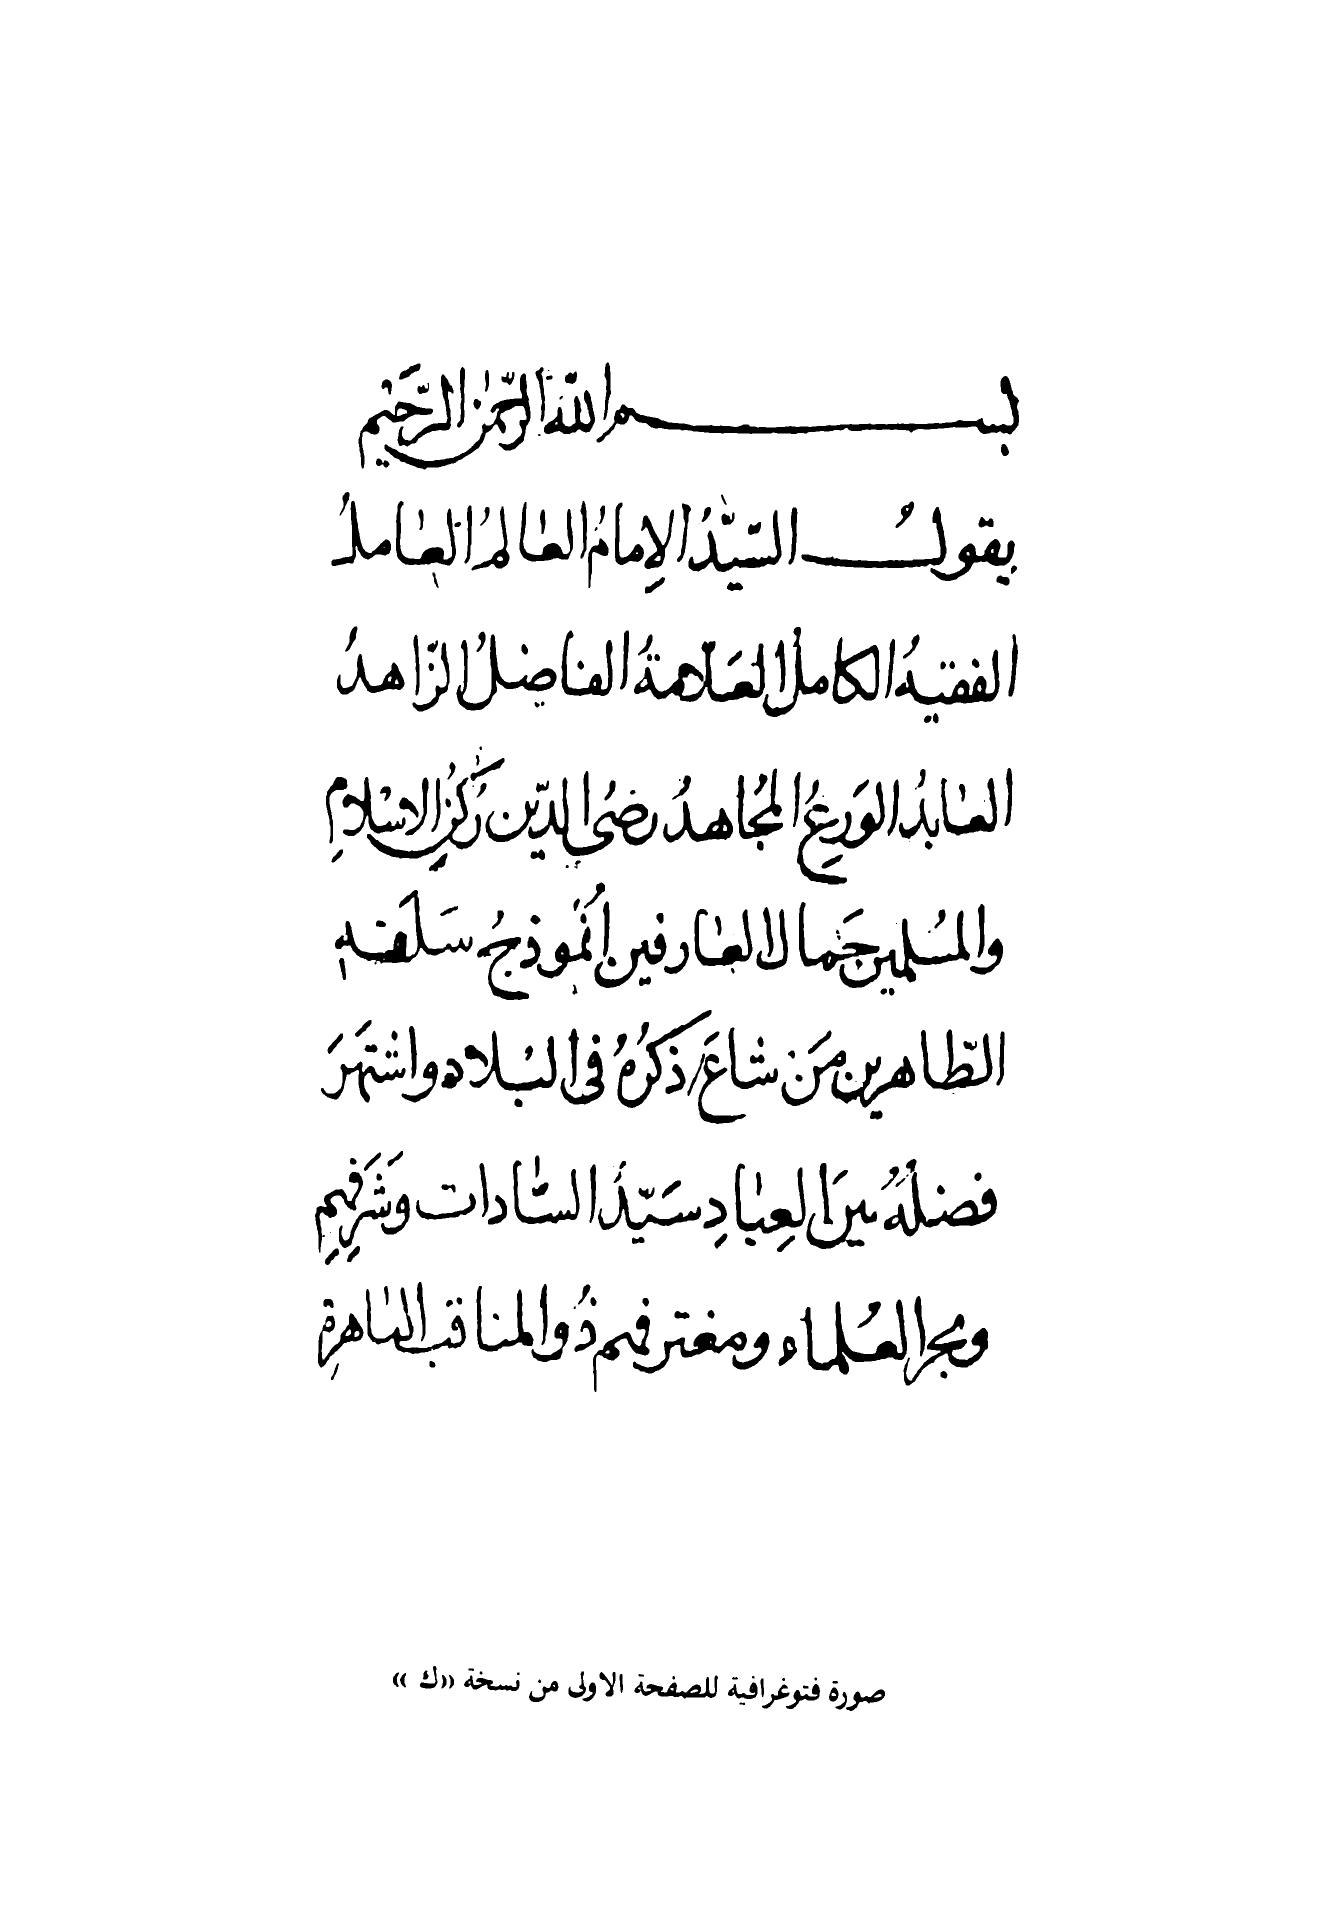 بسم اللّه الرّحمٰن الرّحيم
يقولُ السّيّدُ الإمامُ العالمُ العاملُ
الفقيهُ الكاملُ العَلّامةُ الفاضلُ الزّاهدُ
العابدُ الوَرِعُ المُجاهدُ رضىُ الدّين رُكنُ الاسْلامِ
والمُسلمين جَمالُ العارفين أُنموذجُ سَلَفه
الطّاهرين مَن شاعَ ذكرُهُ فى البُلاد واشتهَرَ
فضلُهُ بينَ العِبادِ سَيّدُ السّادات وَشَرَفهم
وبحر العُلماء ومغترفهم ذُو المناقب الباهرةِ
صورة فتوغرافية للصفحة الاولى من نسخة «ك»